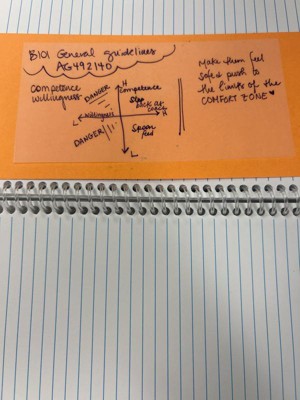 B101 General guidelines
AG492140
competence
willingness
DANGER
H
competence
kick at
L
willingness
H
DANGER
Spoon
fed
L
Make them feel
safe & push to
the limits of the
COMFORT ZONE